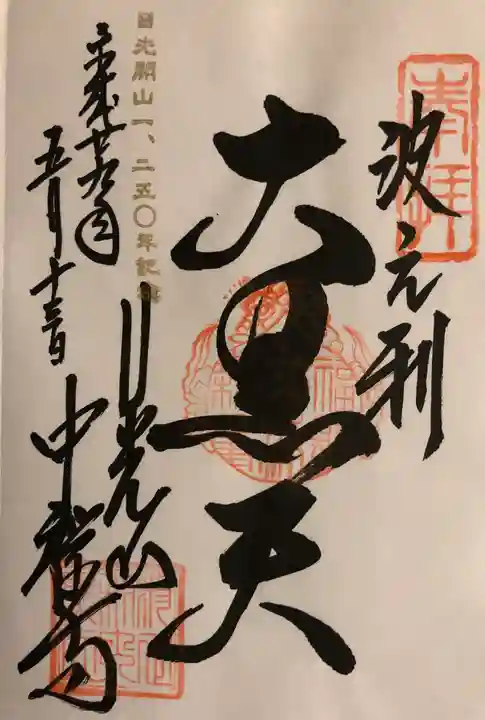 奉拝
波之利
大黒天
日光開山一、二五〇年記念
日光山
中禅寺
平成廿九年
五月十三日